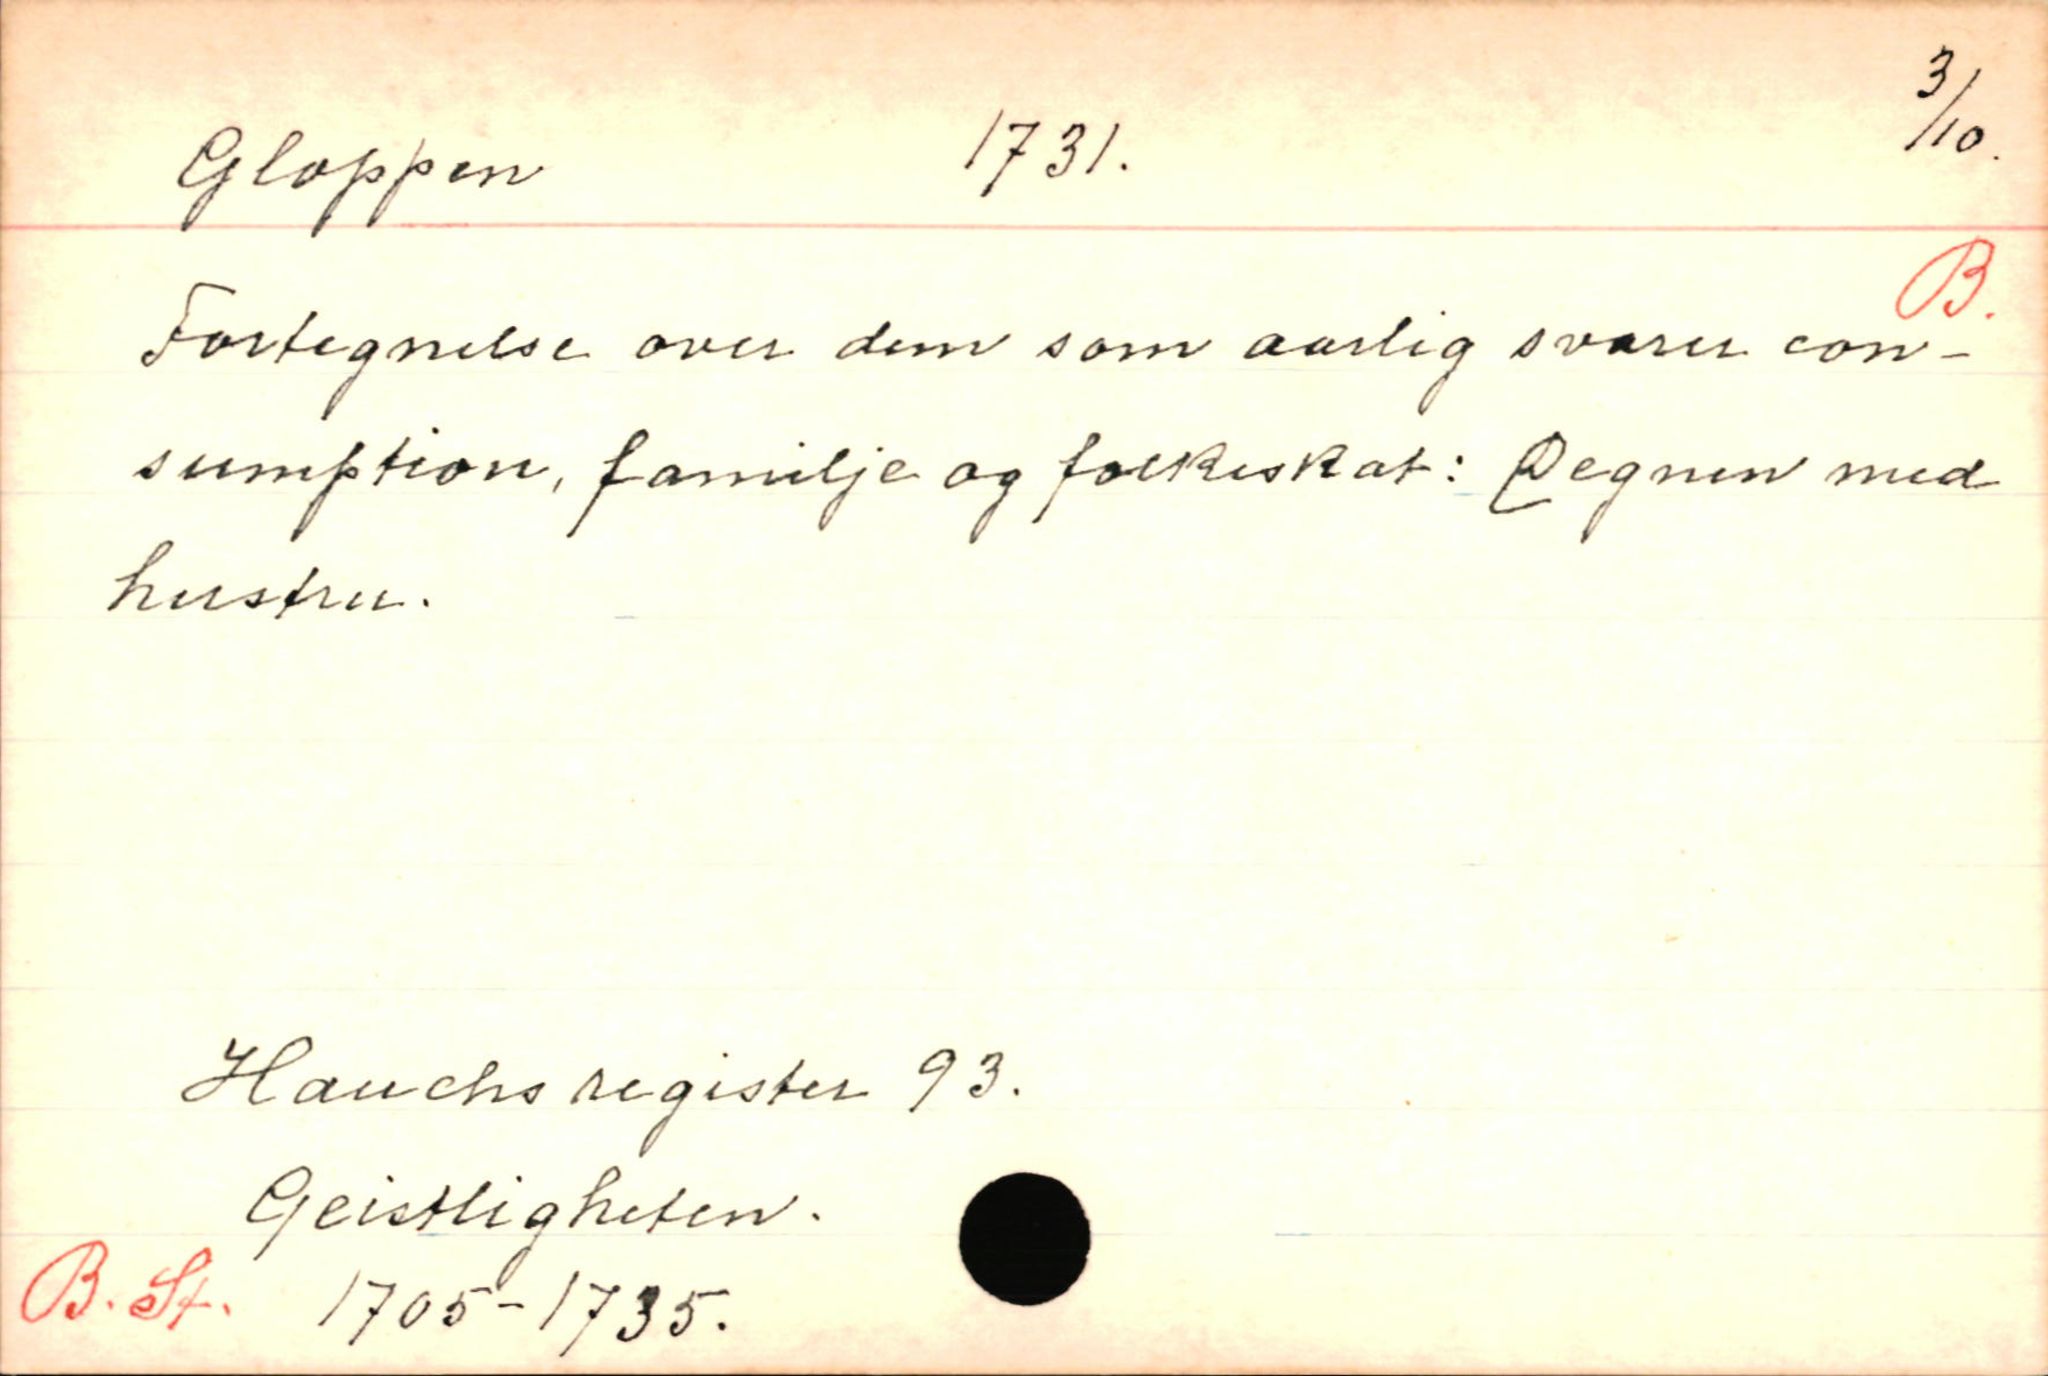 Gloppen 1731. 3/10.
B.
Fortegnelse over dem som aarlig svarer con-
sumption, familje og folkeskat: Degnen med
hustru.
Hauchs register 93.
Geistligheten.
B. St. 1705-1735.